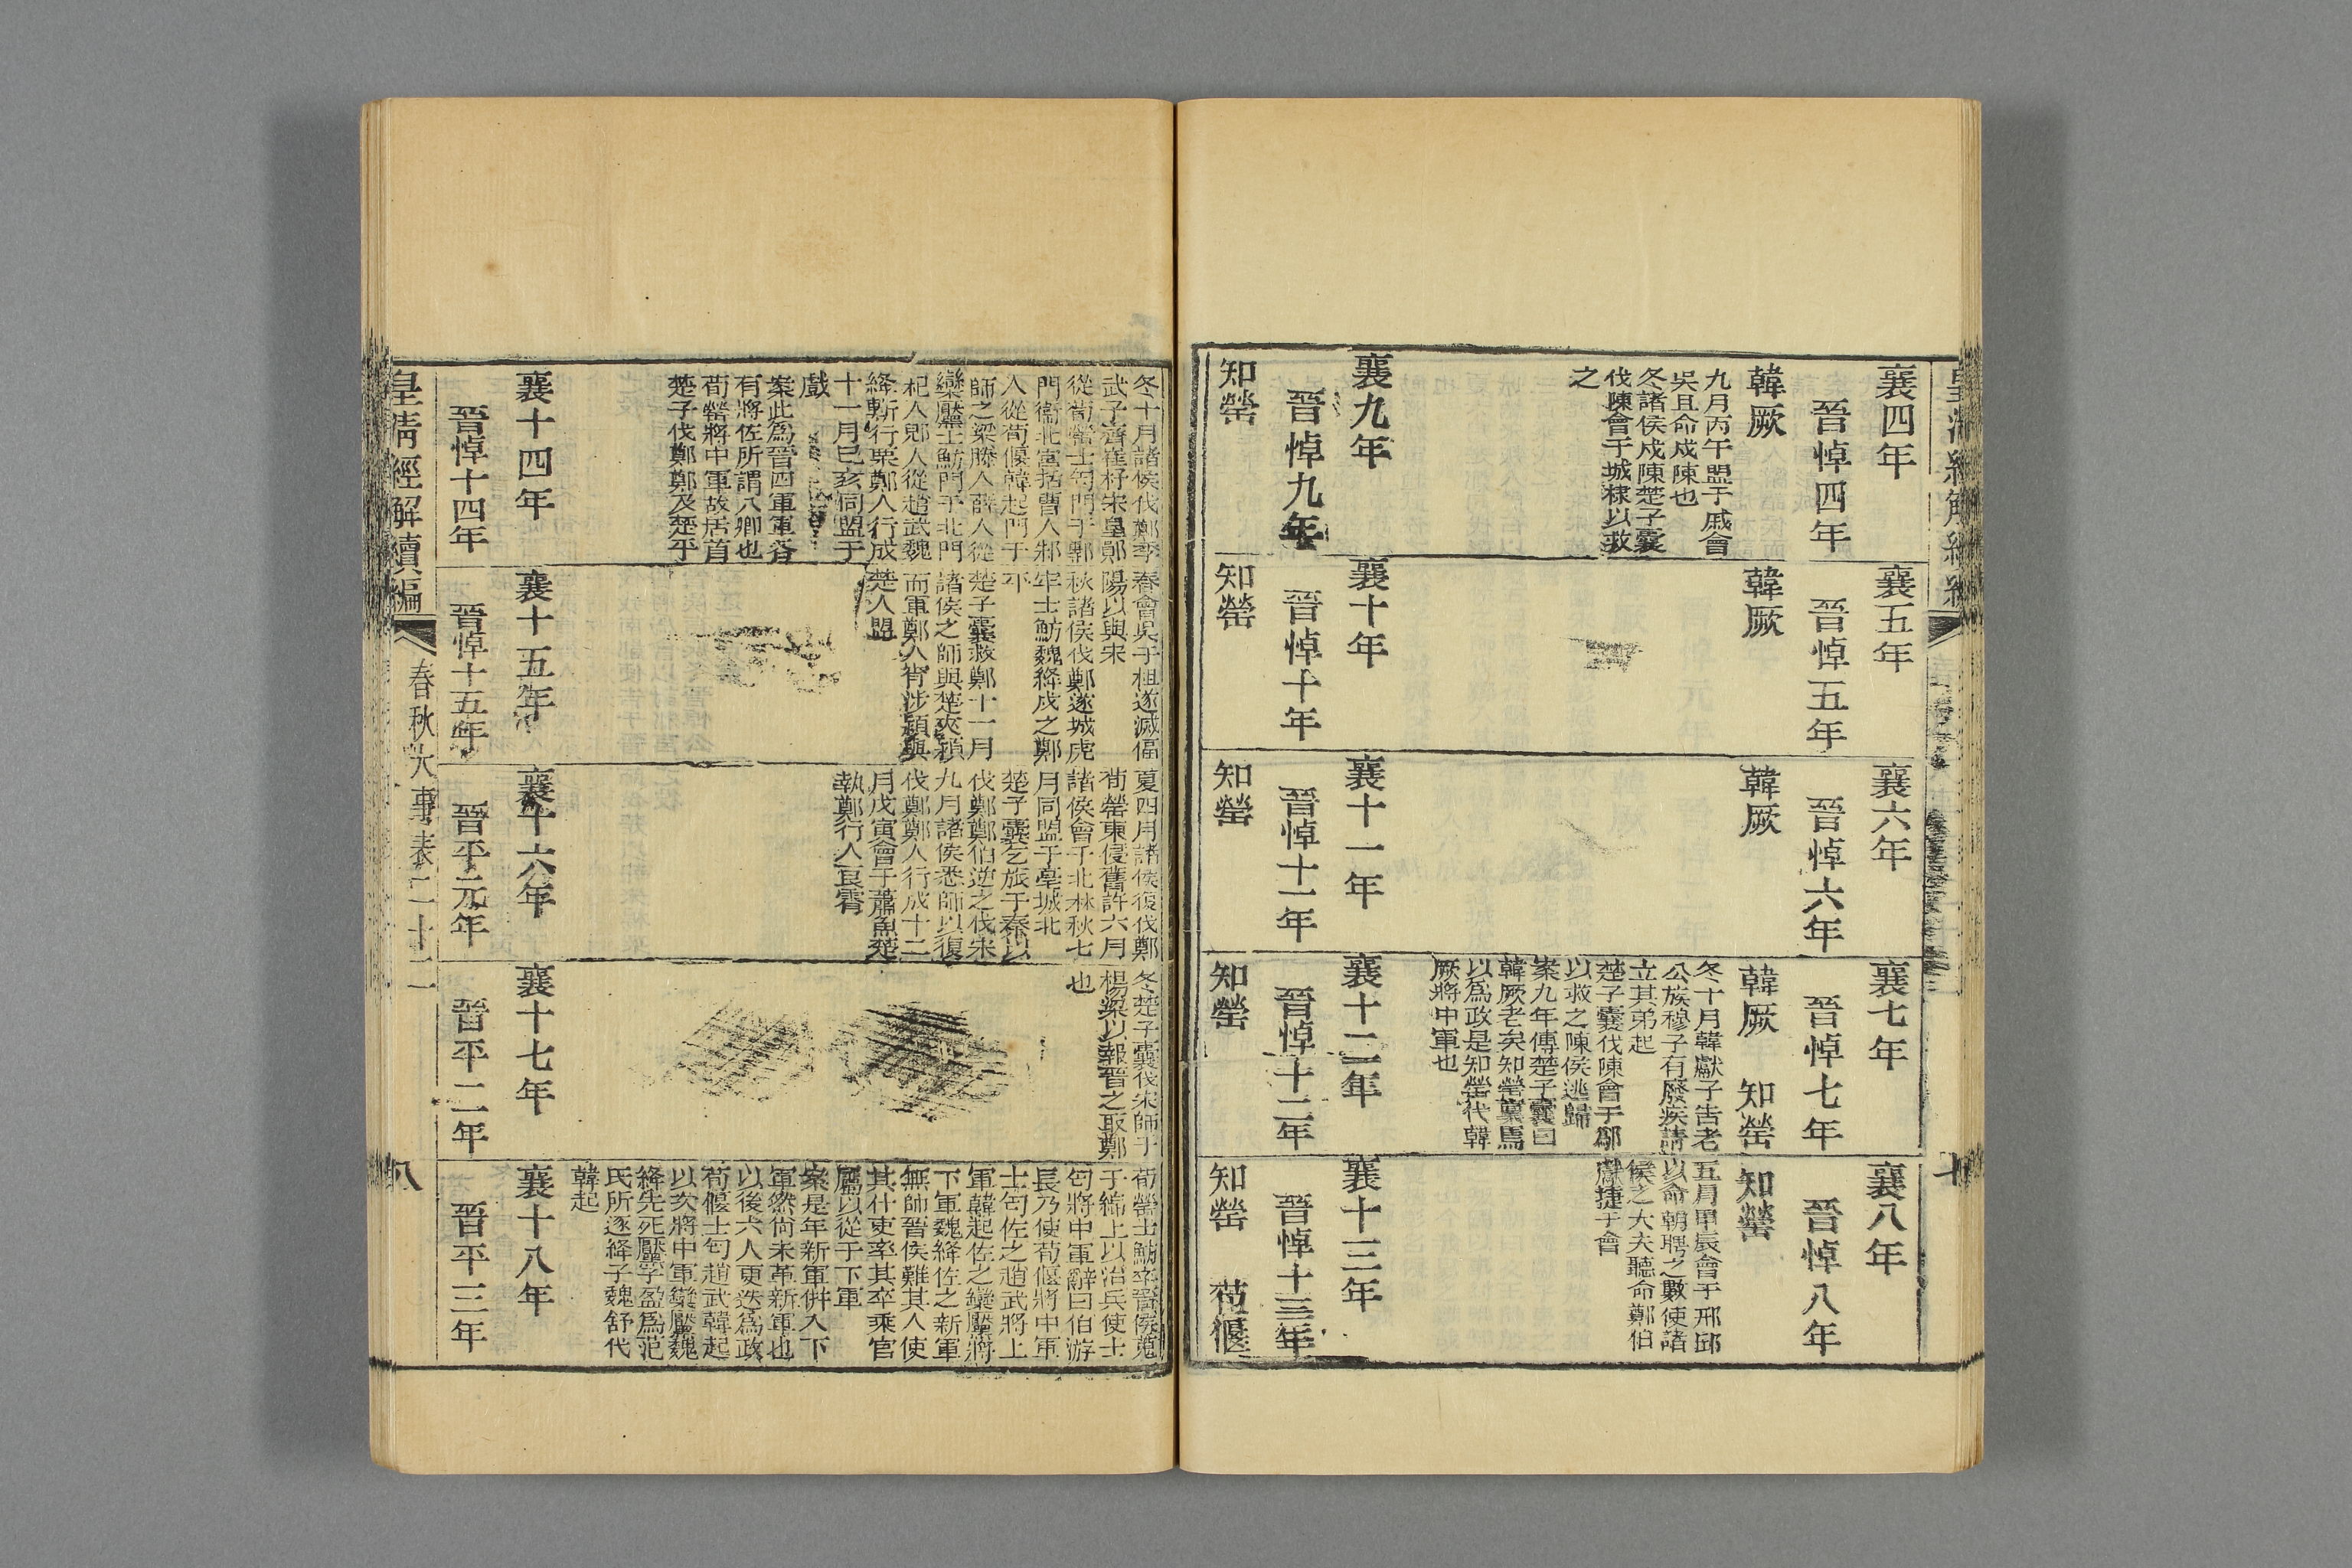 襄四年
晉悼四年
韓厥
襄五年
晉悼五年
韓厥
九月丙午盟于戚會
吳且命戍陳也
冬諸侯戍陳楚子囊
伐陳會于城棣以救
之
襄六年
晉悼六年
韓厥
襄七年
晉悼七年
韓厥 知罃
冬十月韓獻子告老
公族穆子有廢疾請
立其弟起
楚子囊伐陳會于鄬
以救之陳侯逃歸
案九年傳楚子囊曰
韓厥老矣知罃稟焉
以爲政是知罃代韓
厥將中軍也
襄八年
晉悼八年
知罃
五月甲辰會于邢邱
以命朝聘之數使諸
侯之大夫聽命鄭伯
獻捷于會
襄九年
晉悼九年
知罃
襄十年
晉悼十年
知罃
襄十一年
晉悼十一年
知罃
襄十二年
晉悼十二年
知罃
襄十三年
晉悼十三年
知罃 荀偃
冬十月諸侯伐鄭季
武子齊崔杼宋皇鄖
從荀罃士匄門于鄟
門衞北宮括曹人邾
人從荀偃韓起門于
師之梁滕人薛人從
欒黶士魴門于北門
杞人郳人從趙武魏
絳斬行栗鄭人行成
十一月己亥同盟于
戲
案此爲晉四軍軍各
有將佐所謂八卿也
荀罃將中軍故居首
楚子伐鄭鄭及楚平
春會吳于柤遂滅偪
陽以與宋
秋諸侯伐鄭遂城虎
牢士魴魏絳戍之鄭
平
楚子囊救鄭十一月
諸侯之師與楚夾潁
而軍鄭人宵涉潁與
楚人盟
夏四月諸侯復伐鄭
荀罃東侵舊許六月
諸侯會于北林秋七
月同盟于亳城北
楚子囊乞旅于秦以
伐鄭鄭伯逆之伐宋
九月諸侯悉師以復
伐鄭鄭人行成十二
月戊寅會于蕭魚楚
執鄭行人良霄
冬楚子囊伐宋師于
楊梁以報晉之取鄭
也
荀罃士魴卒晉侯蒐
于綿上以治兵使士
匄將中軍辭曰伯游
長乃使荀偃將中軍
士匄佐之趙武將上
軍韓起佐之欒黶將
下軍魏絳佐之新軍
無帥晉侯難其人使
其什吏率其卒乘官
屬以從于下軍
案是年新軍併入下
軍然尚未革新軍也
以後六人更迭爲政
荀偃士匄趙武韓起
以次將中軍欒黶魏
絳先死黶子盈爲范
氏所逐絳子魏舒代
韓起
襄十四年
晉悼十四年
襄十五年
晉悼十五年
襄十六年
晉平元年
襄十七年
晉平二年
襄十八年
晉平三年
皇清經解續編
春秋大事表二十二
八